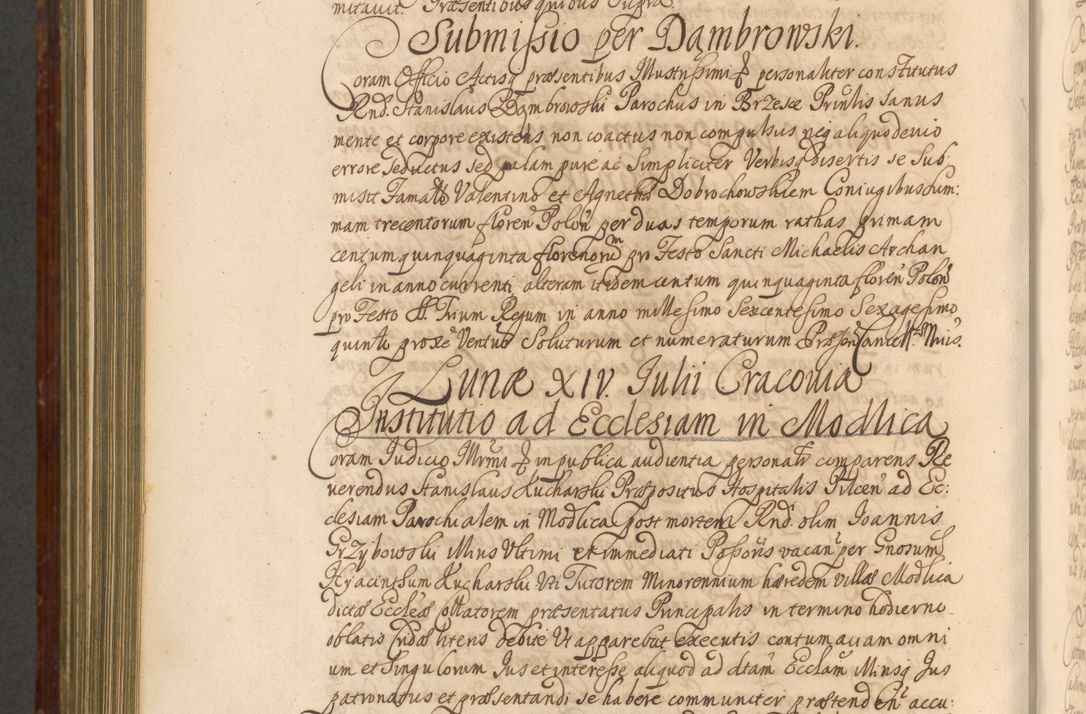 mitavit. Præsentibus quibus supra
Submissio per Dąmbrowski.
Coram Officio Actisq præsentibus Illustrissimi personaliter constitutus
Rnd. Stanislaus Dąmbrowski Parochus in Brzesæ Prinlis sanus
mente et corpore existens non coactus non compulsus neq aliquo devio
errore seductus sed palam pure ac simpliciter Verbisq disertis se sub
misit Famatо Valentino et Agnetha Dobrochowskiem Coniugibus sum:
mam trecentorum floren Polon per duas temporum rathas primam
centum quinquaginta florenorum pro Festo Sancti Michaelis Archan
geli in anno currenti, alteram itidem centum quinquaginta floren Polon
pro Festo SS Trium Regum in anno millesimo sexcentesimo sexagesimo
quinto proxe Venturo Soluturum et numeraturum Præsen Cancell. Mnis.
Lunæ XIV. Iulii Cracoviæ
Institutio ad Ecclesiam in Modlica
Coram Iudicio Illrmi in publica audientia personalr comparens Re
verendus Stanislaus Kucharski Præpositus Hospitalis Pilcen ad Ec:
clesiam Parochialem in Modlica post mortem Rnd. olim Ioannis
Grzybowski Illius Vltimi et immediati Possoris vacan per Gnosum
Hyacinthum Kucharski Uti Tutorem Minorennium hæredem villæ Modlica
dictæ Ecclæ ollatorem præsentatus Principalis in termino hodierno
oblatis cridæ literis debite Ut apparebat executis contum avam omni
um et singulorum Ius et interesse aliquod ad dtam Ecclam Illiusq Ius
patronatus et præsentandi se habere communiter prætenden accu: